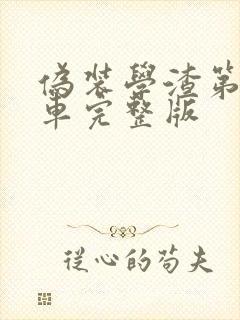 偽裝學渣第
車完整版
從心的苟夫